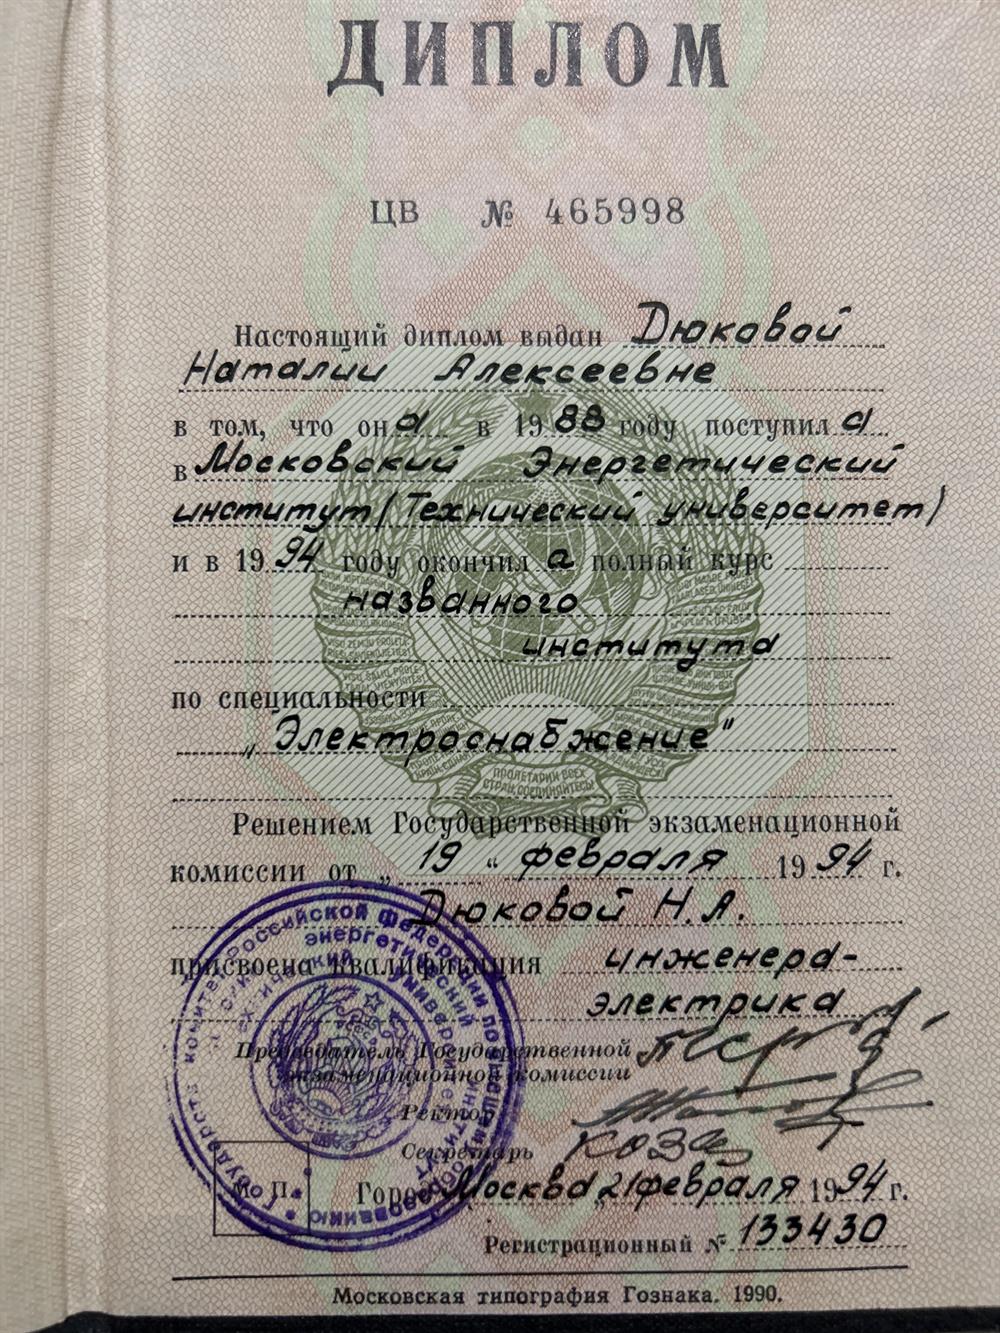 ДИПЛОМ
ЦВ № 465998
Настоящий диплом выдан Дюковой
Наталии Алексеевне
в том, что она в 1988 году поступила
в Московский Энергетический
институт (Технический университет)
и в 1994 году окончила полный курс
названного
института
по специальности
„Электроснабжение"
ПРОЛЕТАРИИ ВСЕХ
СТРАН, СОЕДИНЯЙТЕСЬ!
Решением Государственной экзаменационной
комиссии от „19“ февраля 1994 г.
Дюковой Н.А.
присвоена квалификация инженера-
электрика
Председатель Государственной
экзаменационной комиссии
Ректор
Секретарь
М. П.
Город Москва „21 февраля 1994 г.
Регистрационный № 133430
Московская типография Гознака. 1990.